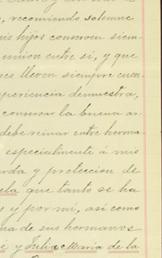 , recomiendo solemne
mis hijos conserven siem
union entre si, y que
ces lleven siempre cuen
periencia demuestra,
conservar la buena ar
debe reinar entre herma
especialmente á mis
arda y proteccion de
ela que tanto se ha
o y por mi, así como
na de sus hermanos
é y Julia Maria de la